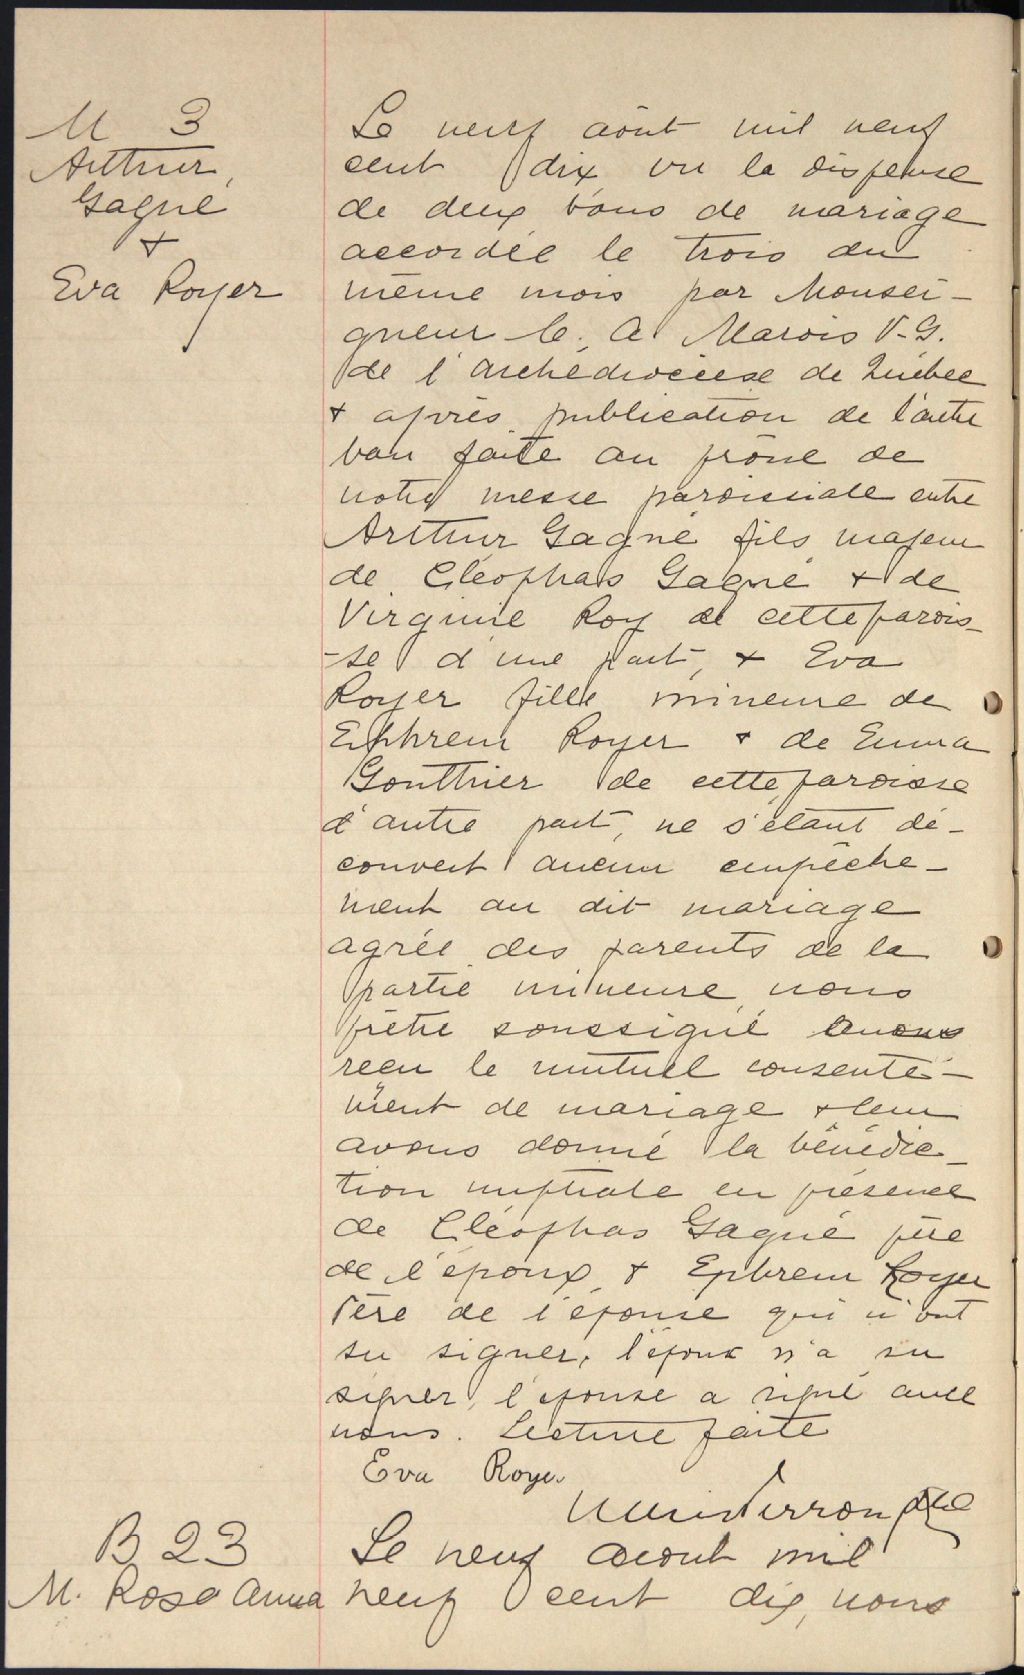 M 3
Arthur
Gagné
+
Eva Royer
Le neuf août mil neuf
cent dix vu la dispense
de deux bans de mariage
accordée le trois du
même mois par Monsei-
gneur C. A Marois V.G.
de l'archediocèse de Québec
+ après publication de l'autre
ban faite au prône de
notre messe paroissiale entre
Arthur Gagné fils majeur
de Cléophas Gagné + de
Virginie Roy de cette parois-
-se d'une part, + Eva
Royer fille mineure de
Ephrem Royer + de Emma
Gonthier de cette paroisse
d'autre part, ne s'étant dé-
couvert aucun empêche-
ment au dit mariage
agréé des parents de la
partie mineure nous
prêtre soussigné avons
reçu le mutuel consente-
ment de mariage + leur
avons donné la bénédic-
tion nuptiale en présence
de Cléophas Gagné père
de l'époux, + Ephrem Royer
Père de l'épouse qui n'ont
su signer, l'époux n'a su
signer, l'épouse a signé avec
nous. Lecture faite
Eva Royer
ptre
B 23
M. Rose Anna
Le neuf aout mil
neuf cent dix, nous